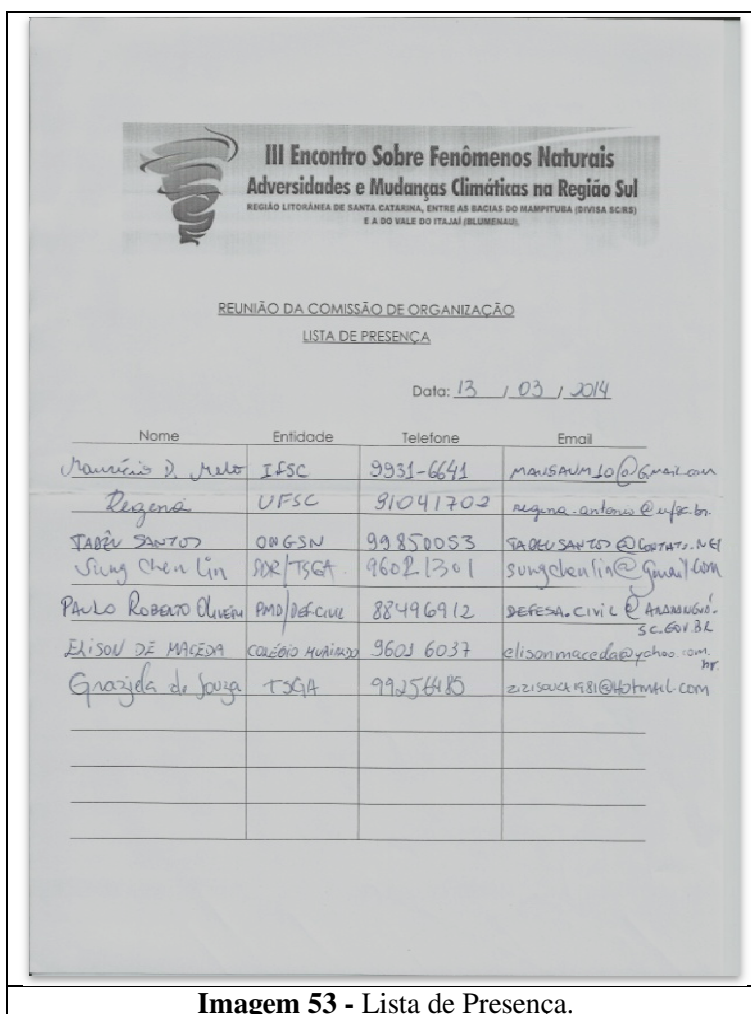 III Encontro Sobre Fenômenos Naturais
Adversidades e Mudanças Climáticas na Região Sul
REGIÃO LITORÂNEA DE SANTA CATARINA, ENTRE AS BACIAS DO MAMPITUBA (DIVISA SC/RS)
E A DO VALE DO ITAJAÍ (BLUMENAU).
REUNIÃO DA COMISSÃO DE ORGANIZAÇÃO
LISTA DE PRESENÇA
Data: 13 / 03 / 2014
Nome Entidade Telefone Email
Maurício D. Melo IFSC 9931-6641
Regena UFSC 91041702 regina.antonio@ufsc.br
TADEU SANTOS ONGSN 99850053
Sung Chen Lin SDR/TSGA 96021301 sungchenlin@gmail.com
PAULO ROBERTO OLIVEIRA PMD/DEF CIVIL 88496912 DEFESA.CIVIL@
SC.GOV.BR
ELISON DE MACEDA COLÉGIO 9601 6037 elisonmaceda@yahoo.com.
br
Graziela de Souza TSGA 99256485
Imagem 53 - Lista de Presença.